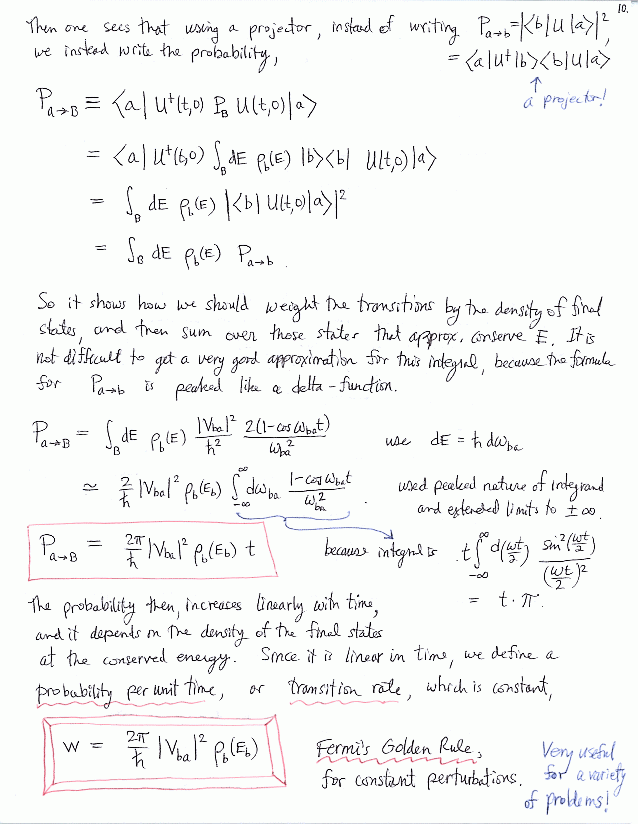 10.
Then one sees that using a projector, instead of writing P_{a→b} = |<b|U|a>|²,
we instead write the probability, = <a|U†|b><b|U|a>
↑
a projector!
P_{a→B} ≡ <a| U†(t,0) P_B U(t,0)|a>
= <a| U†(t,0) ∫_B dE ρ_b(E) |b><b| U(t,0)|a>
= ∫_B dE ρ_b(E) |<b| U(t,0)|a>|²
= ∫_B dE ρ_b(E) P_{a→b}.
So it shows how we should weight the transitions by the density of final
states, and then sum over those states that approx. conserve E. It is
not difficult to get a very good approximation for this integral, because the formula
for P_{a→b} is peaked like a delta-function.
P_{a→B} = ∫_B dE ρ_b(E) |V_{ba}|²/ħ² 2(1-cos ω_{ba}t)/ω_{ba}² use dE = ħ dω_{ba}
≃ 2/ħ |V_{ba}|² ρ_b(E_b) ∫_{-∞}^{∞} dω_{ba} (1-cos ω_{ba}t)/ω_{ba}². used peaked nature of integrand
and extended limits to ±∞.
P_{a→B} = 2π/ħ |V_{ba}|² ρ_b(E_b) t because integral is t∫_{-∞}^{∞} d(ωt/2) sin²(ωt/2)/(ωt/2)²
= t·π.
The probability then, increases linearly with time,
and it depends on the density of the final states
at the conserved energy. Since it is linear in time, we define a
probability per unit time, or transition rate, which is constant,
w = 2π/ħ |V_{ba}|² ρ_b(E_b) Fermi's Golden Rule,
for constant perturbations.
Very useful
for a variety
of problems!